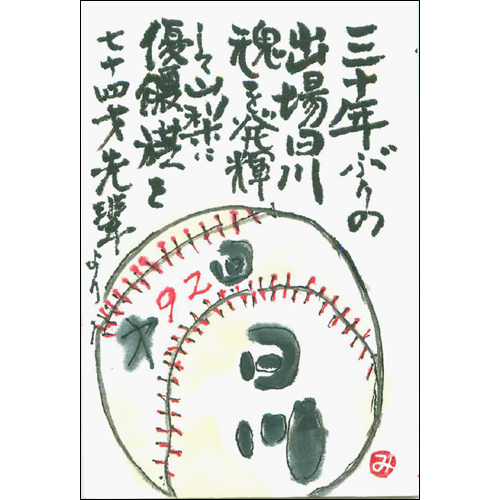 三十年ぶりの
出場日川
魂を発揮
して山梨に
優勝旗を
七十四才先輩より
才92回
日川
み